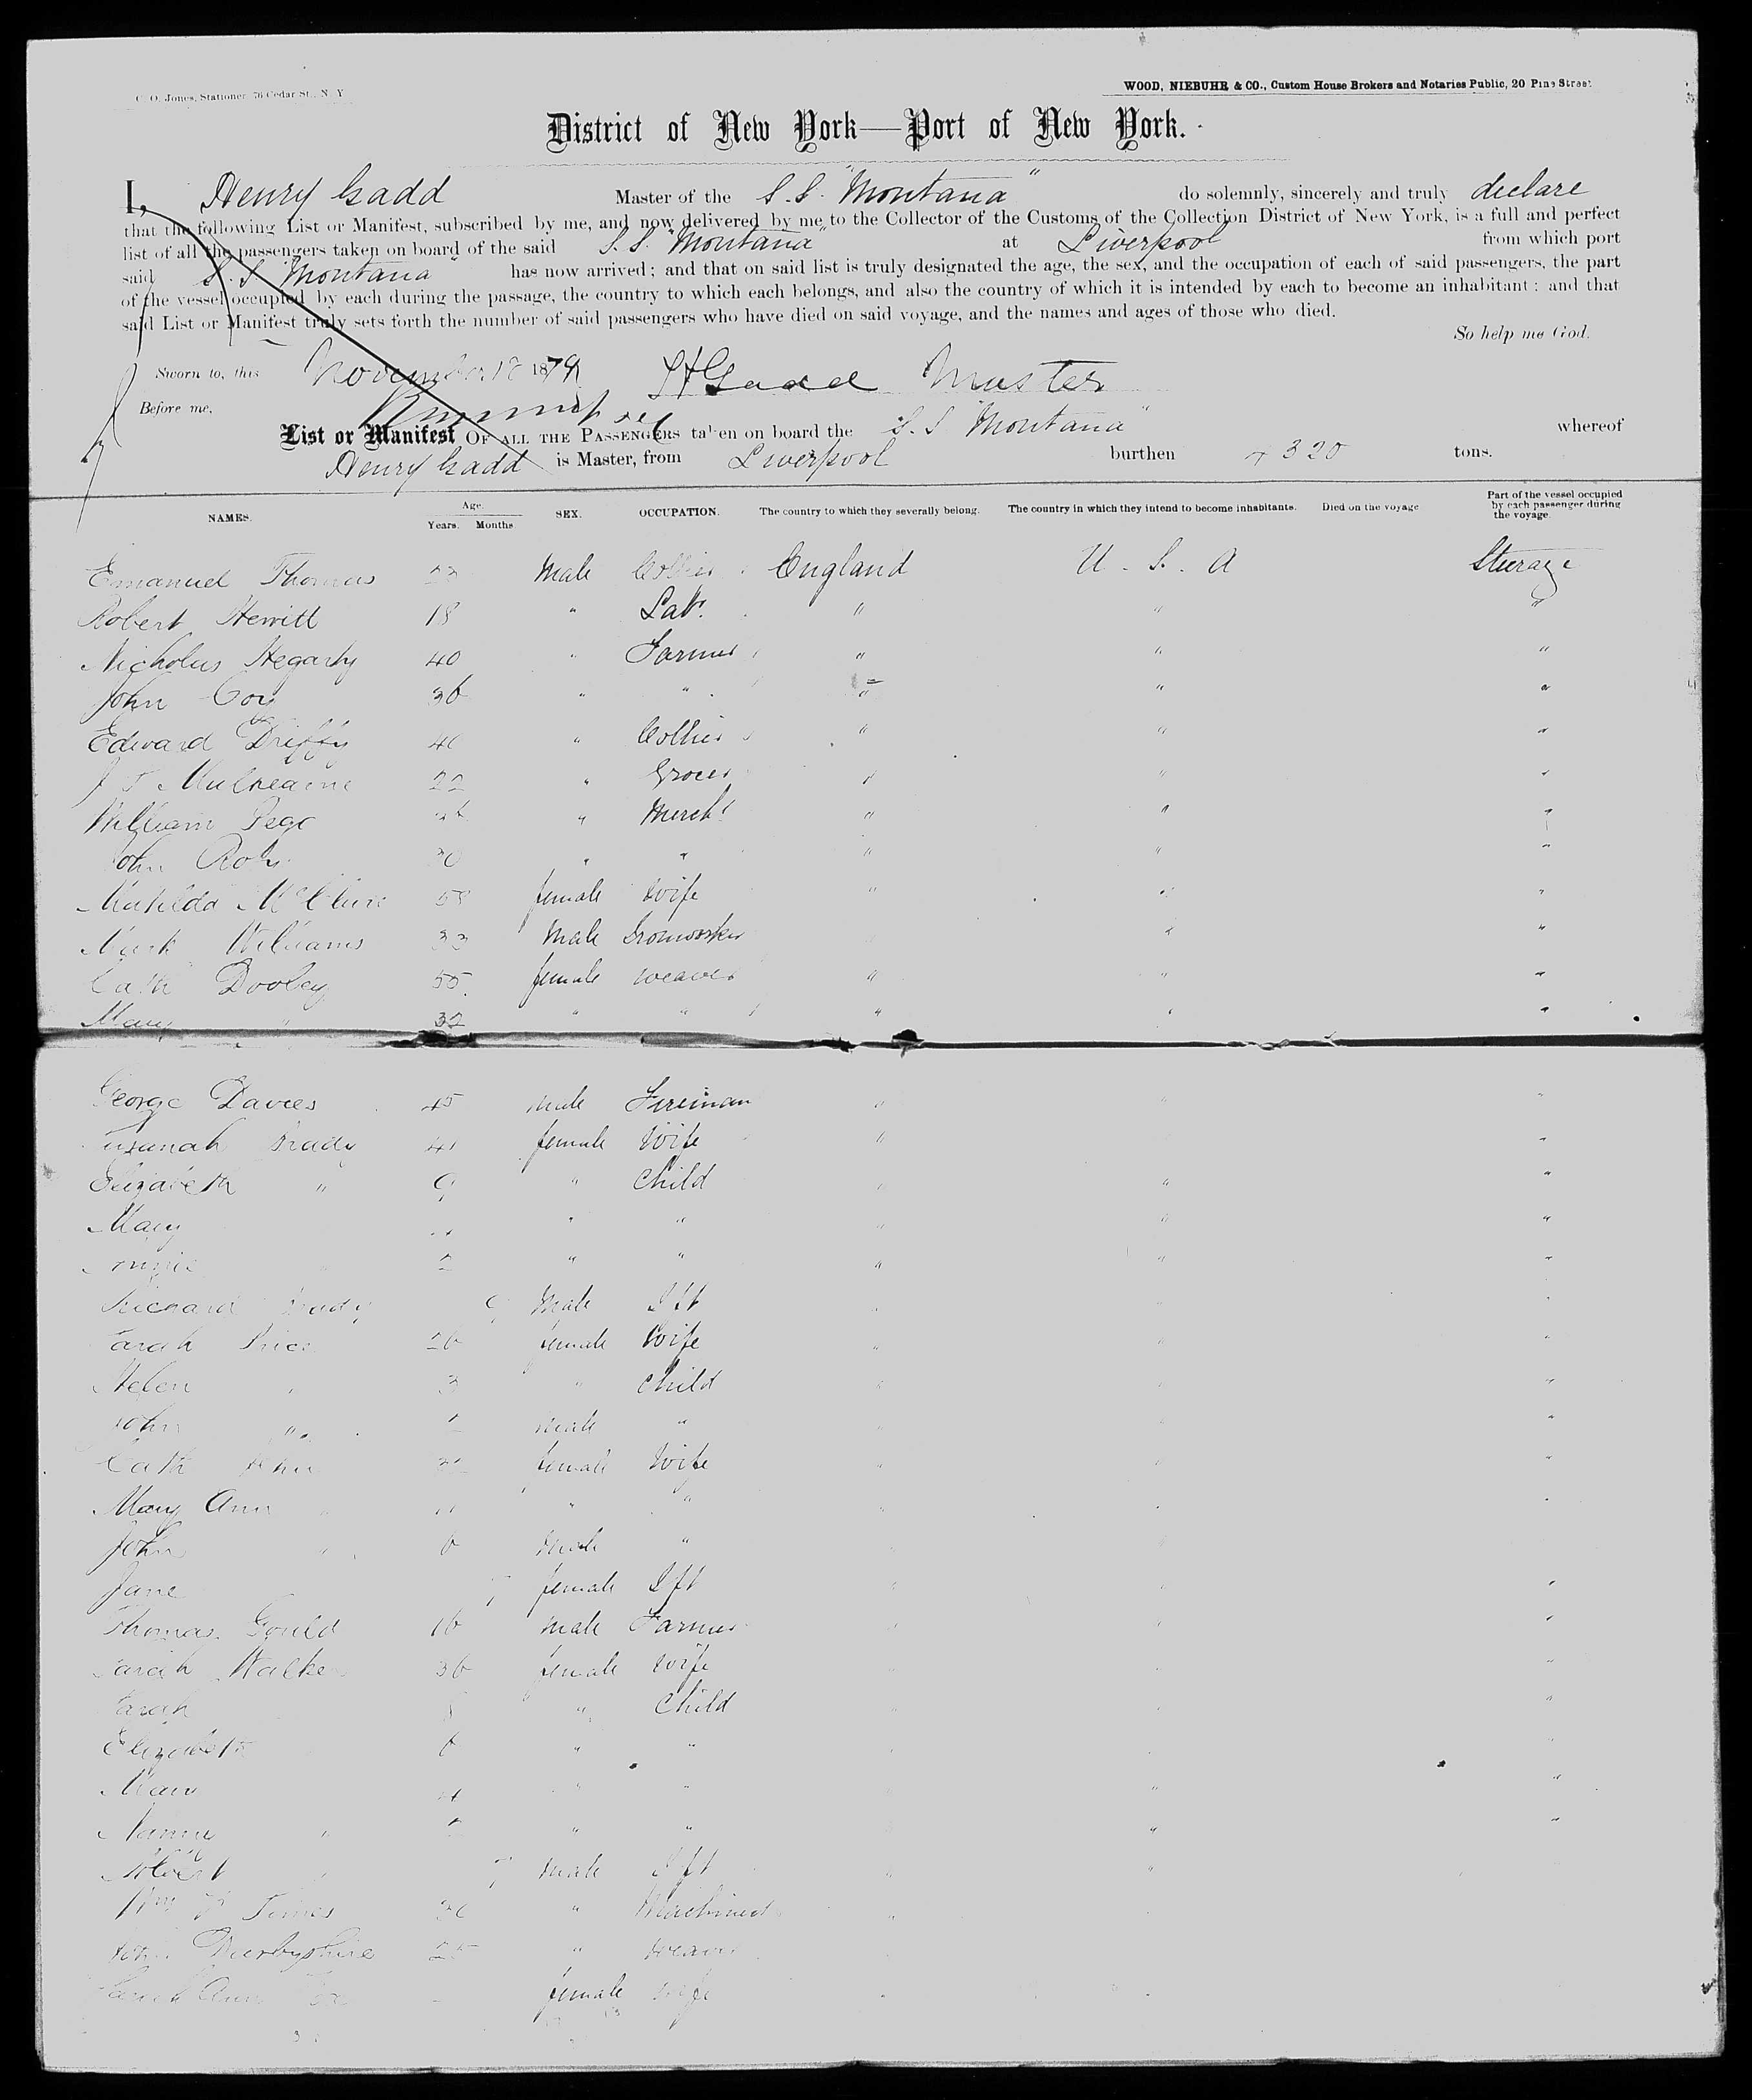 C. O. Jones, Stationer 76 Cedar St., N. Y
WOOD, NIEBUHR & CO., Custom House Brokers and Notaries Public, 20 Pine Street
District of New York—Port of New York.
I, Henry Gadd Master of the S.S. "Montana" do solemnly, sincerely and truly declare
that the following List or Manifest, subscribed by me, and now delivered by me to the Collector of the Customs of the Collection District of New York, is a full and perfect
list of all the passengers taken on board of the said S.S. "Montana" at Liverpool from which port
said S.S "Montana" has now arrived; and that on said list is truly designated the age, the sex, and the occupation of each of said passengers, the part
of the vessel occupied by each during the passage, the country to which each belongs, and also the country of which it is intended by each to become an inhabitant; and that
said List or Manifest truly sets forth the number of said passengers who have died on said voyage, and the names and ages of those who died.
So help me God.
Sworn to, this November 18 1879 HGadd Master
Before me,
List or Manifest OF ALL THE PASSENGERS taken on board the S.S "Montana" whereof
Henry Gadd is Master, from Liverpool burthen 4320 tons.
NAMES. Age. Years. Months SEX. OCCUPATION. The country to which they severally belong. The country in which they intend to become inhabitants. Died on the voyage Part of the vessel occupied by each passenger during the voyage.
Emanuel Thomas 23 Male Collier England U.S.A Steerage
Robert Hewitt 18 " Labr. " " "
Nicholas Hegarty 40 " Farmer " " "
John Coy 36 " " " " "
Edward 40 " Collier " " "
22 " Grocer " " "
William Pegg " Mercht " " "
John 30 " " " " "
Matilda McClure 58 female wife " " "
Mark Williams 33 Male Ironworker " "
Cath Dooley 55 female weaver " " "
Mary " 32 " " " " "
George Davies 45 Male Fireman " " "
Susanah Brady 41 female Wife " "
Elizabeth " 9 " Child " " "
Mary " " " " "
Annie " 2 " " " " "
Richard Brady 9 Male Ift " " "
Sarah Price 26 female Wife " " "
Helen " 3 " Child " " "
John " Male " "
Cath female Wife " " "
Mary Ann " 11 " " " " "
John " 6 Male " "
Jane 7 female Ift " " "
Thomas Gould 16 Male Farmer " " "
Sarah Walker 36 female Wife " " "
Sarah 8 " Child " " "
Elizabeth 6 " " " "
Mary 4 " " " "
Nanny " " " " "
Albert " 7 Male Ift " "
Wm Jones " Machinist "
John Derbyshire 25 " Weaver
Sarah Ann female Wife